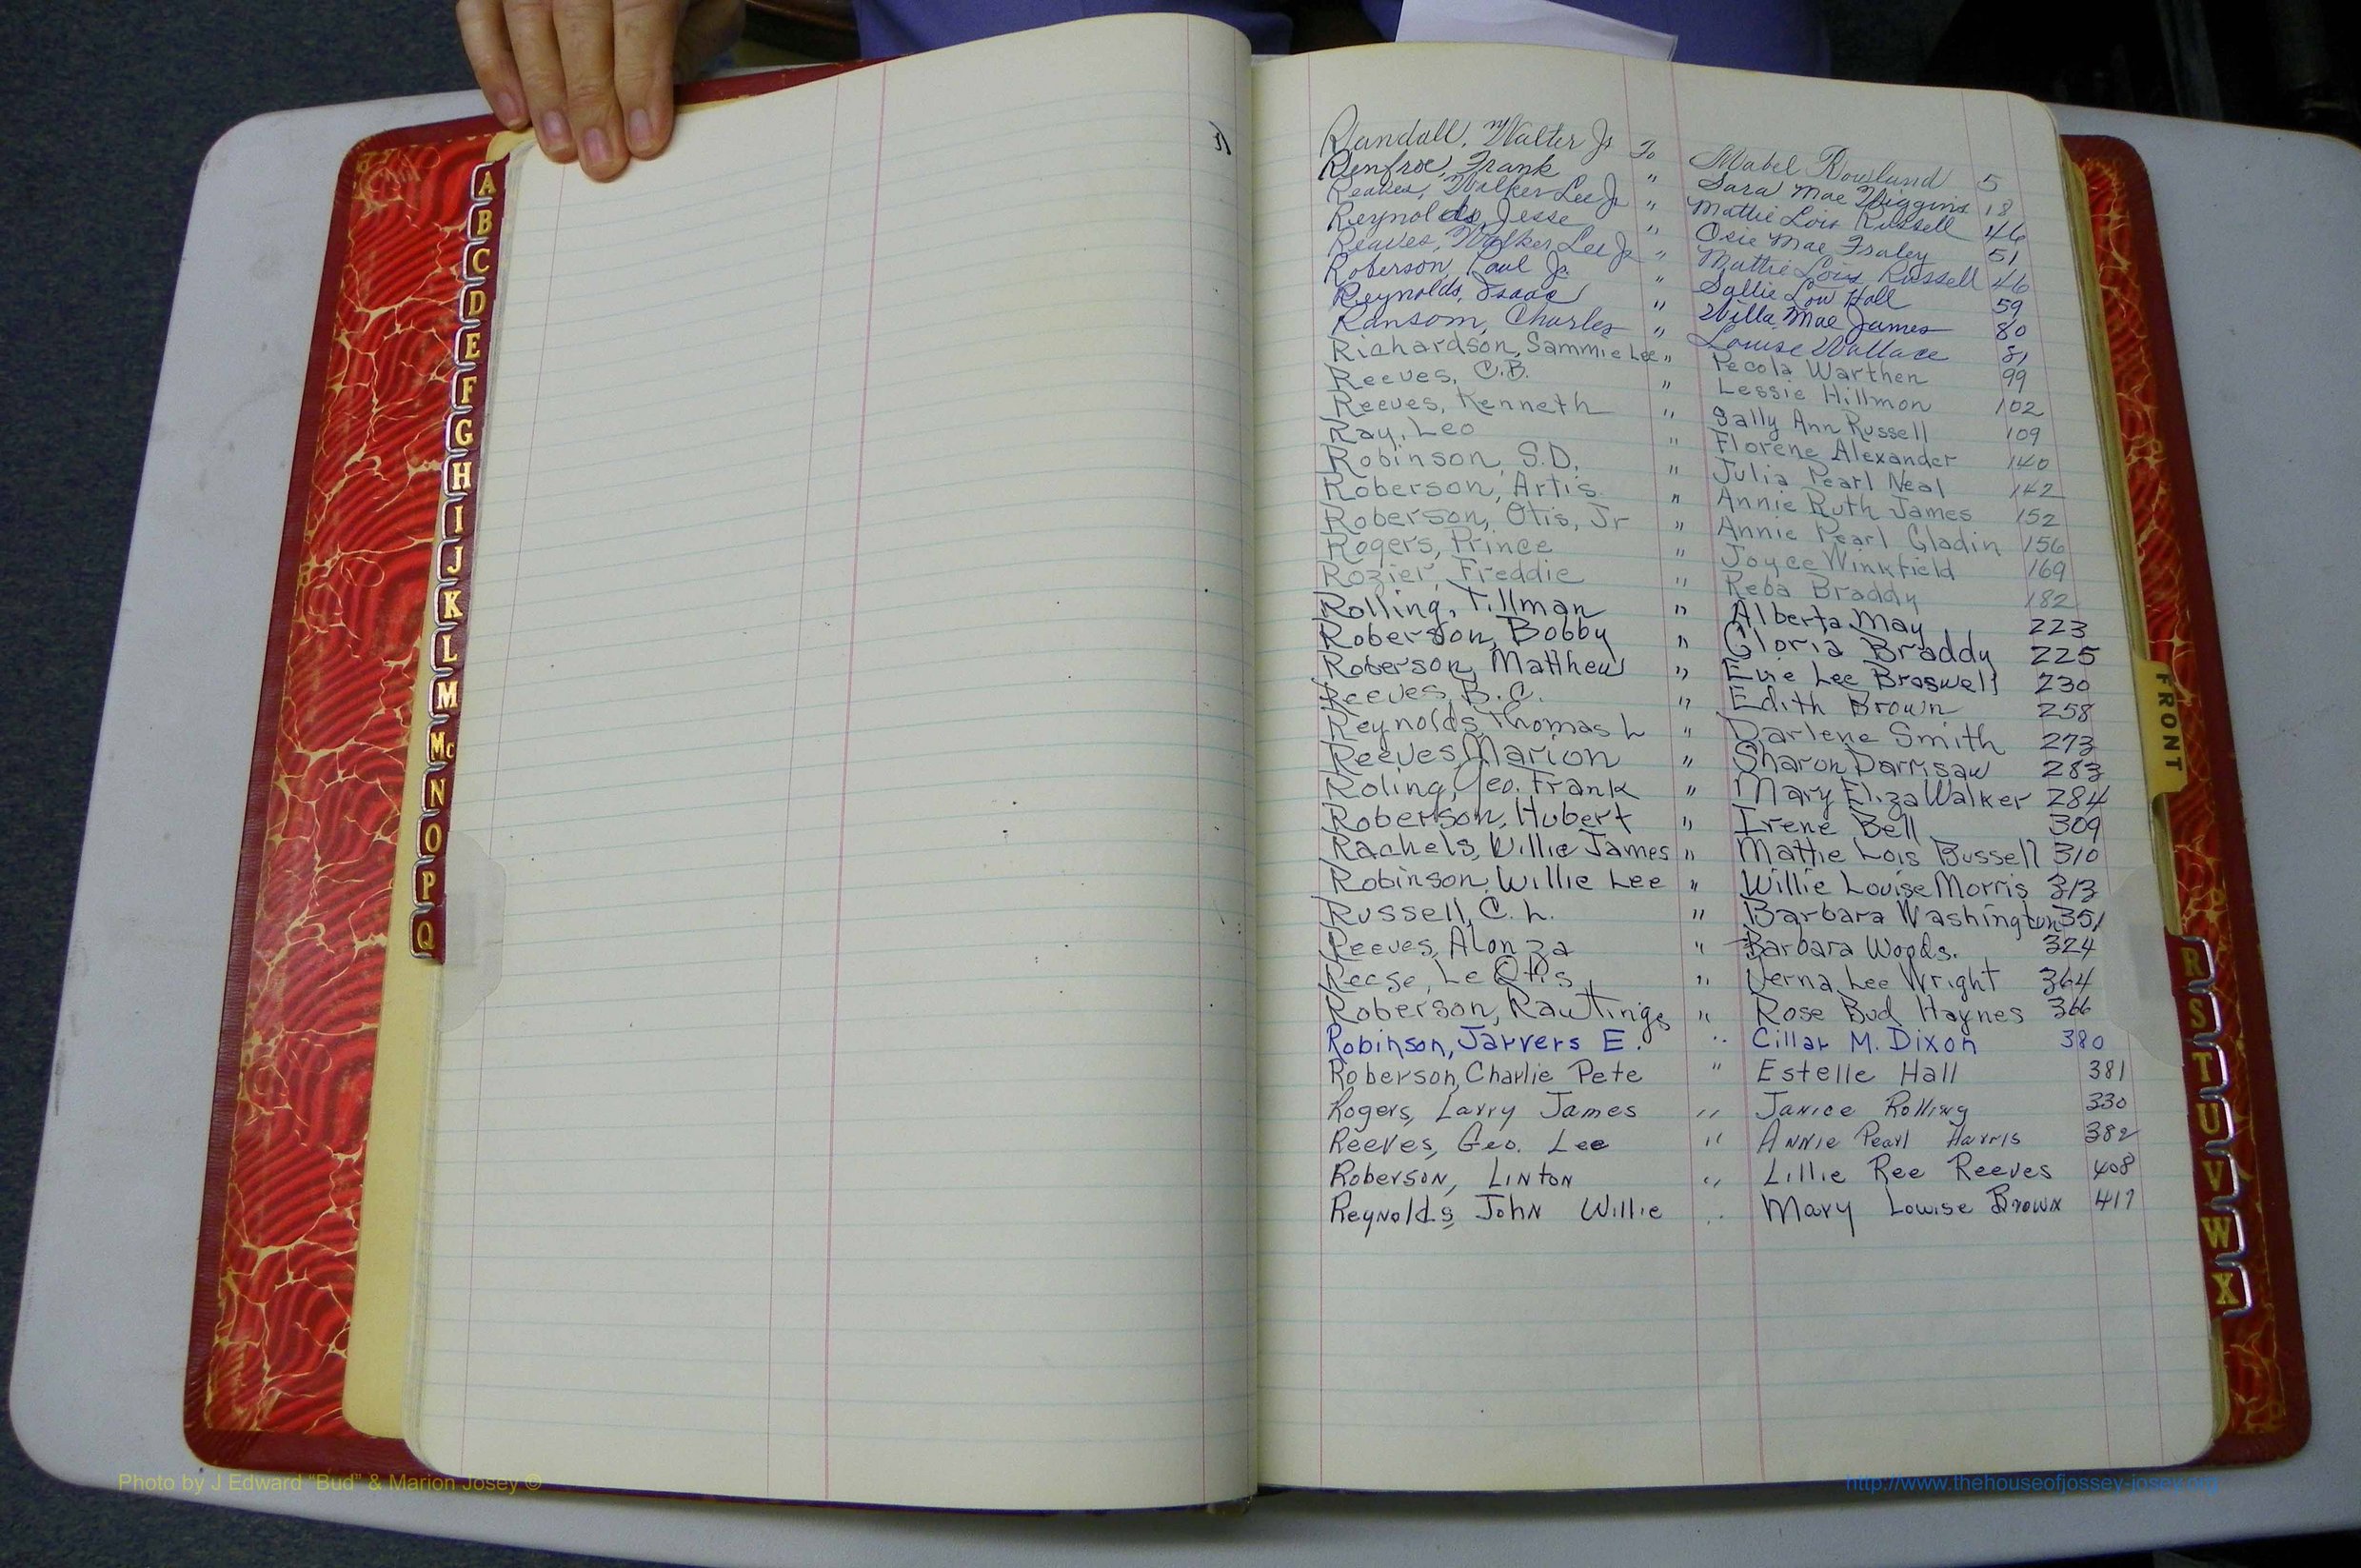 A
B
C
D
E
F
G
H
I
J
K
L
M
Mc
N
O
P
Q
Randall, Walter Jr To Mabel Rowland 5
Renfroe, Frank " Sara Mae Wiggins 18
Reaves, Walker Lee Jr " Mattie Lois Russell 46
Reynolds, Jesse " Osie Mae Fraley 51
Reaves, Walker Lee Jr " Mattie Lois Russell 46
Roberson, Paul Jr. " Sallie Lou Hall 59
Reynolds, Isaac " Willa Mae James 80
Ransom, Charles " Louise Wallace 81
Richardson, Sammie Lee " Pecola Warthen 99
Reeves, C.B. " Lessie Hillmon 102
Reeves, Kenneth " Sally Ann Russell 109
Ray, Leo " Florene Alexander 140
Robinson, S.D. " Julia Pearl Neal 142
Roberson, Artis " Annie Ruth James 152
Roberson, Otis, Jr " Annie Pearl Gladin 156
Rogers, Prince " Joyce Winkfield 169
Rozier, Freddie " Reba Braddy 182
Rolling, Tillman " Alberta May 223
Roberson, Bobby " Gloria Braddy 225
Roberson, Matthew " Evie Lee Braswell 230
Reeves, B.C. " Edith Brown 258
Reynolds, Thomas L " Darlene Smith 273
Reeves, Marion " Sharon Darrisaw 283
Roling, Geo. Frank " Mary Eliza Walker 284
Roberson, Hubert " Irene Bell 309
Rachels, Willie James " Mattie Lois Bussell 310
Robinson, Willie Lee " Willie Louise Morris 313
Russell, C. L. " Barbara Washington 351
Reeves, Alonza " Barbara Woods. 324
Reese, Le Otis " Verna Lee Wright 364
Roberson, Rawlings " Rose Bud Haynes 366
Robinson, Jarvers E. " Cillar M. Dixon 380
Roberson, Charlie Pete " Estelle Hall 381
Rogers, Larry James " Janice Rolling 330
Reeves, Geo. Lee " Annie Pearl Harris 382
Roberson, Linton " Lillie Ree Reeves 408
Reynolds, John Willie " Mary Lowise Brown 417
FRONT
R
S
T
U
V
W
X
Photo by J Edward “Bud” & Marion Josey ©
http://www.thehouseofjossey-josey.org